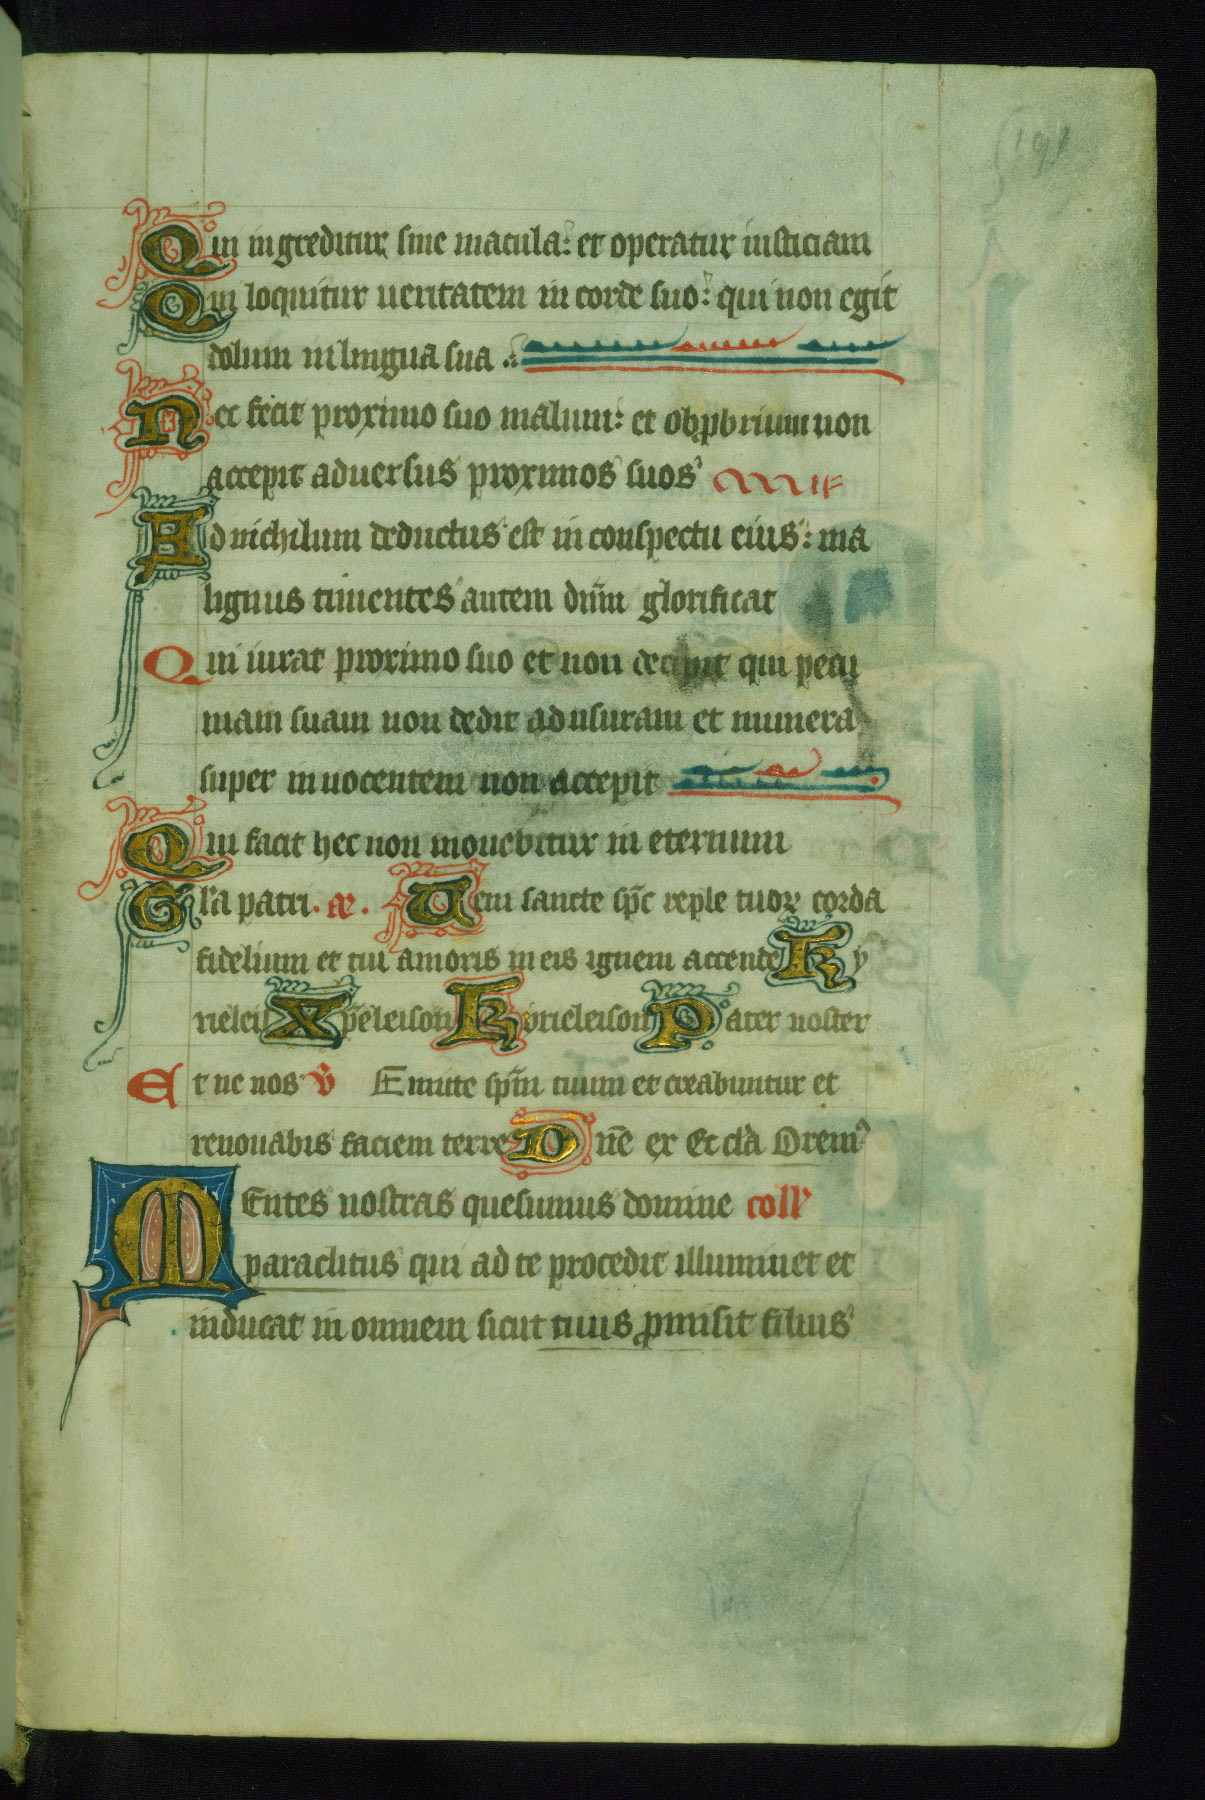 Qui ingreditur sine macula: et operatur iusticiam
Qui loquitur ueritatem in corde suo: qui non egit
dolum in lingua sua .
Nec fecit proximo suo malum: et obꝓbrium non
accepit aduersus proximos suos
Ad nichilum deductus est in conspectu eius: ma
lignus timentes autem dn̄m glorificat
Qui iurat proximo suo et non decipit qui pecu
niam suam non dedit ad usuram et munera
super innocentem non accepit
Qui facit hec non mouebitur in eternum
Gl'a patri. æ. Ueni sancte sp̄c reple tuoꝝ corda
fidelium et tui amoris in eis ignem accende Ky
rieleis Xp̄eleison Kyrieleison Pater noster
Et ne nos v̉ Emitte sp̄m tuum et creabuntur et
renouabis faciem terre Dn̄e ex Et cla Oremꝰ
MEntes nostras quesumus domine coll'
paraclitus qui ad te procedit illuminet et
inducat in omnem sicut tuus ꝓmisit filius